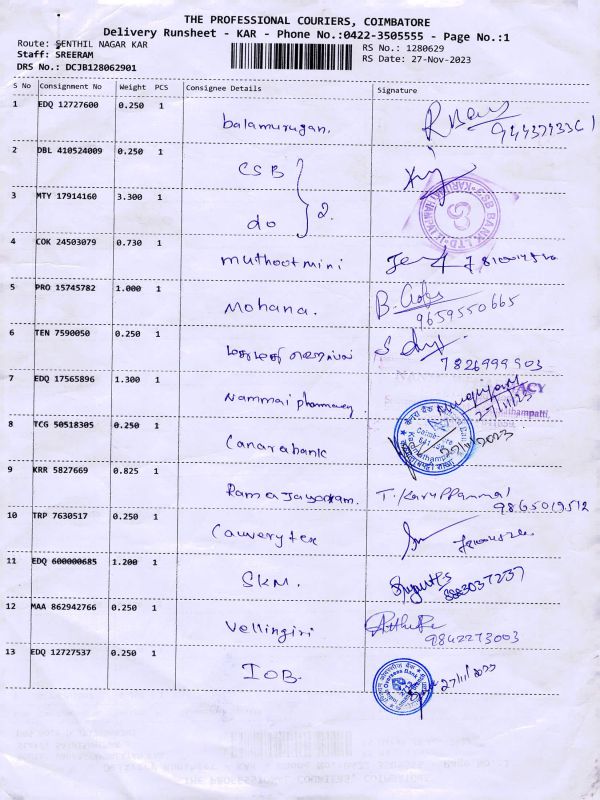 THE PROFESSIONAL COURIERS, COIMBATORE
Delivery Runsheet - KAR - Phone No.:0422-3505555 - Page No.:1
Route: SENTHIL NAGAR KAR
RS No.: 1280629
Staff: SREERAM
RS Date: 27-Nov-2023
DRS No.: DCJB128062901
S No Consignment No Weight PCS Consignee Details Signature
1 EDQ 12727600 0.250 1 balamurugan.
2 DBL 410524009 0.250 1 CSB
3 MTY 17914160 3.300 1 do } 2.
CSB BANK LTD
4 COK 24503079 0.730 1 muthoot mini
5 PRO 15745782 1.000 1 Mohana.
9659550665
6 TEN 7590050 0.250 1
7826999503
7 EDQ 17565896 1.300 1 Nammai pharmacy
27/11/23
8 TCG 50518305 0.250 1 Canara bank
9 KRR 5827669 0.825 1 T. Karuppammal
9865019512
10 TRP 7630517 0.250 1 Cauvery tex
11 EDQ 600000685 1.200 1 SKM.
8883037237
12 MAA 862942766 0.250 1 Vellingiri
9842273003
13 EDQ 12727537 0.250 1 IOB. 27/11/2023